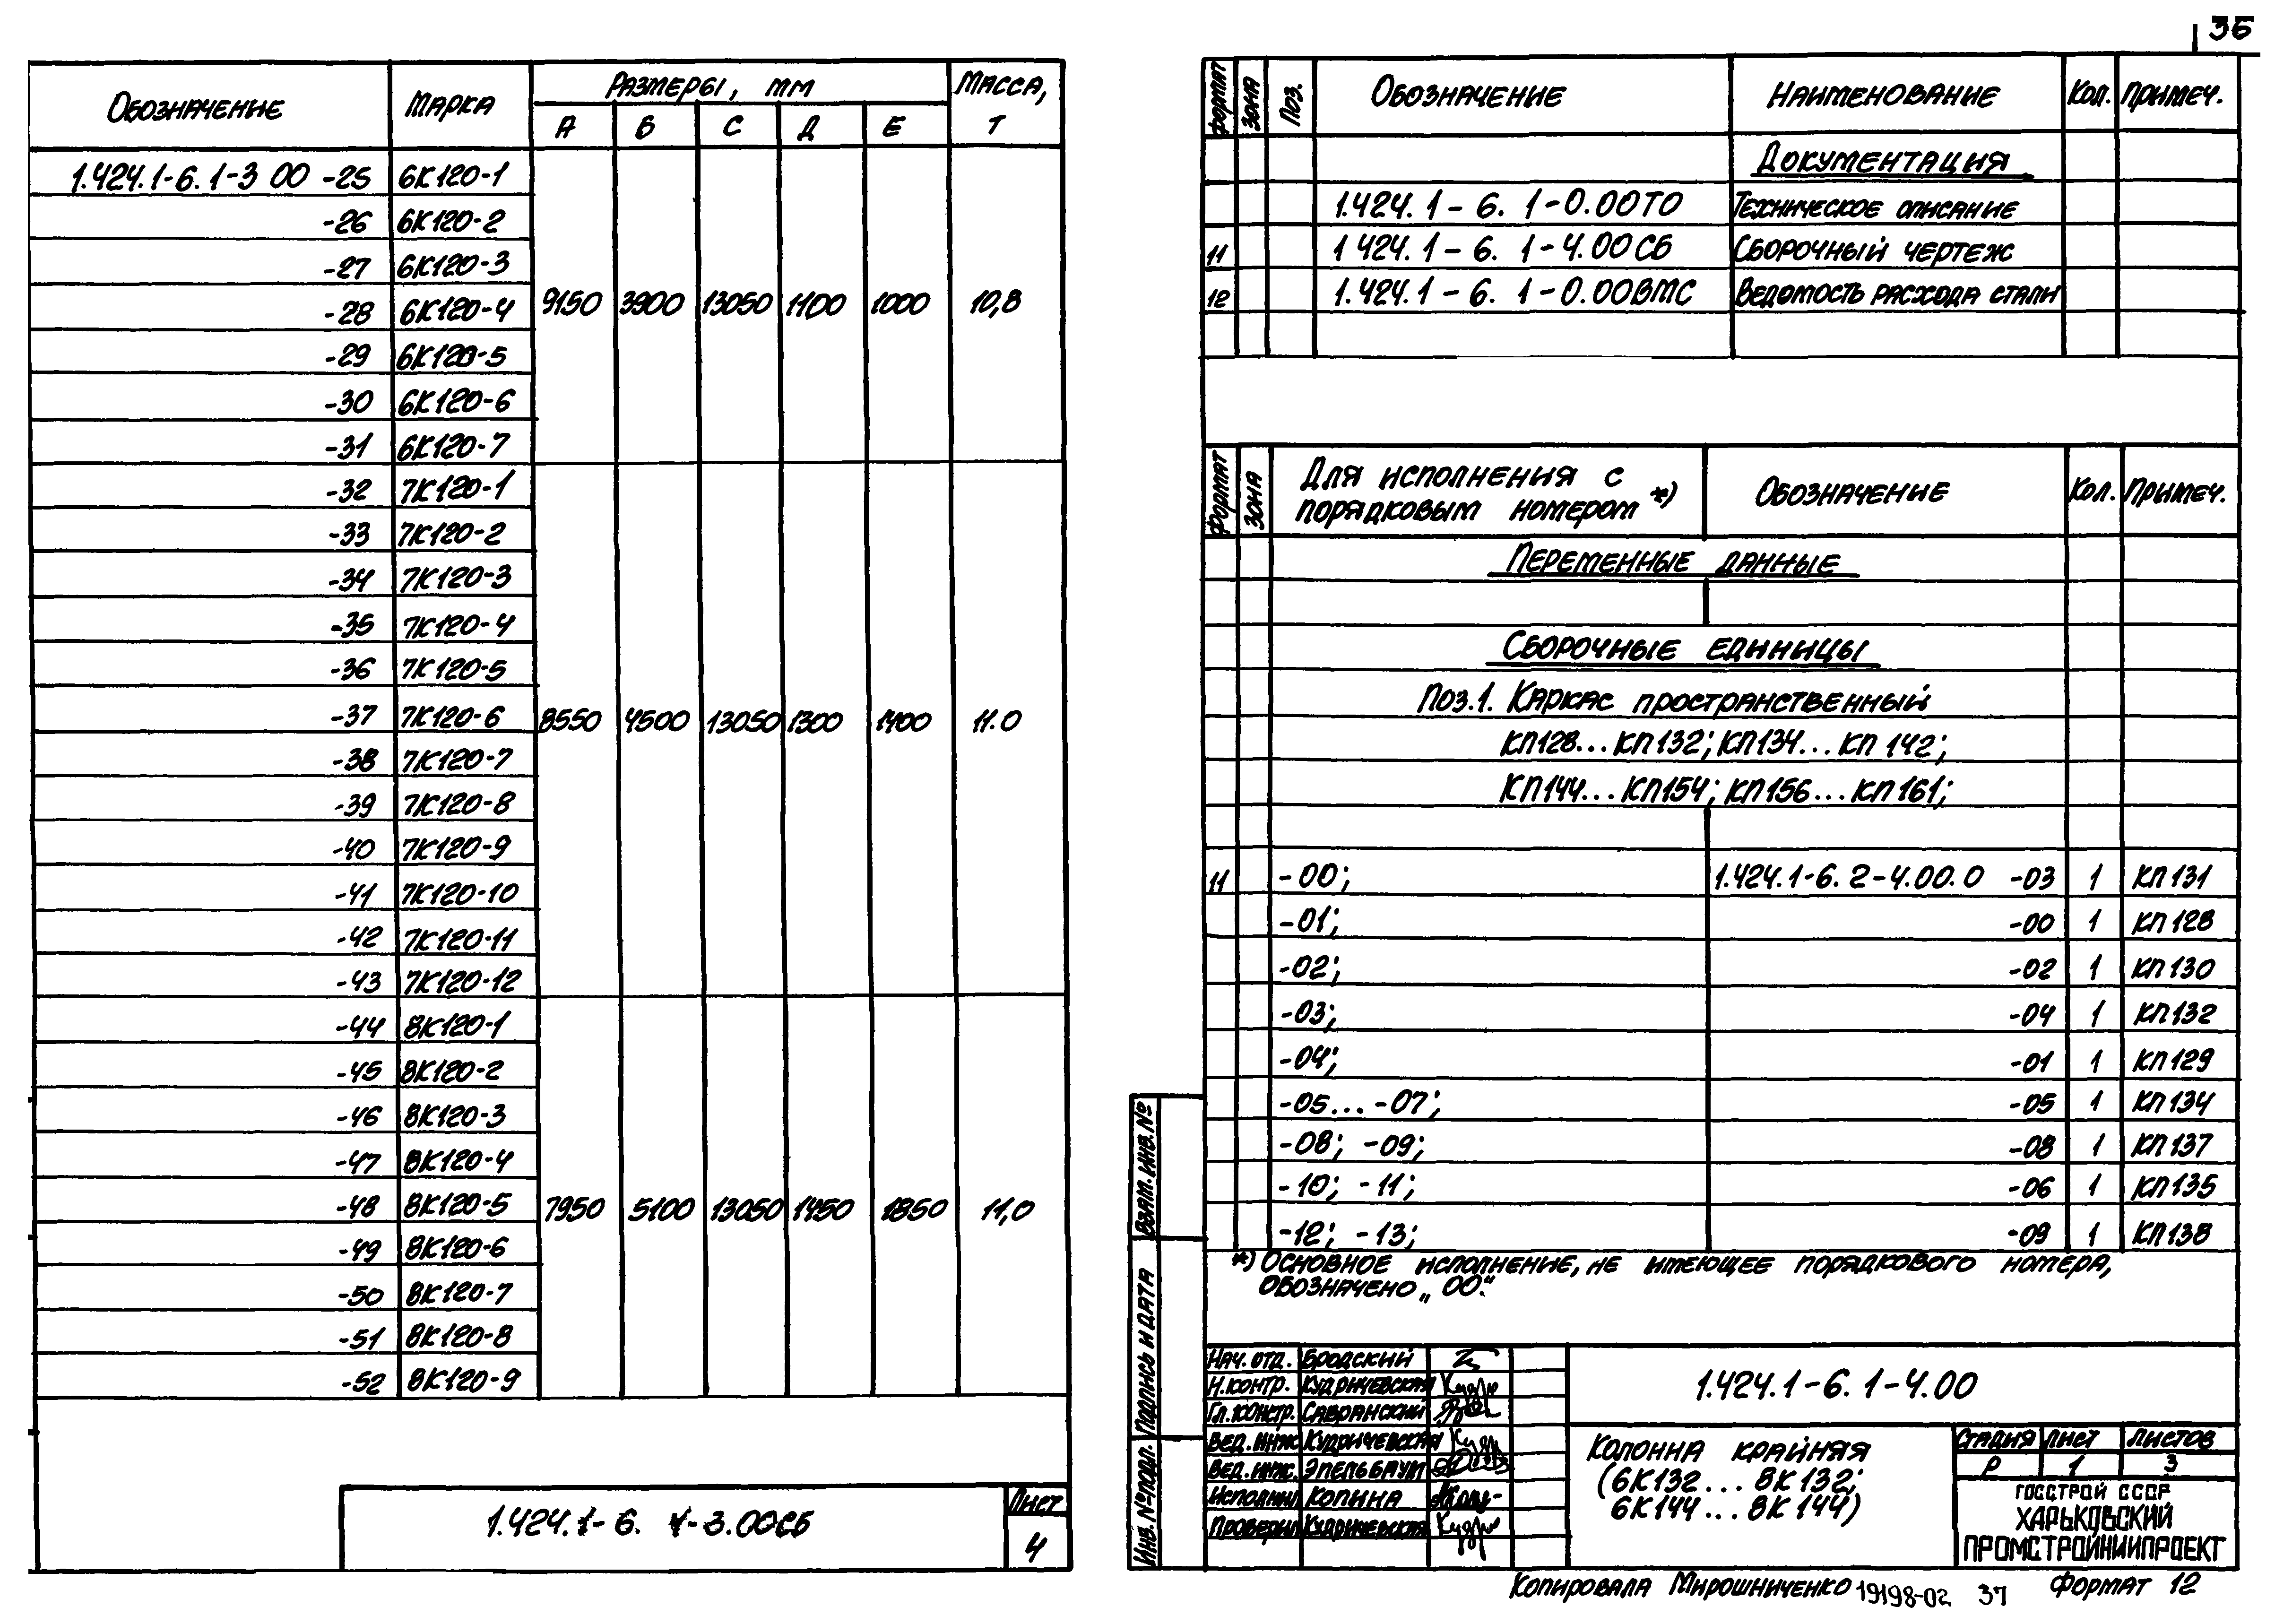 36
Обозначение Марка Размеры, мм Масса, т
А В С Д Е
1.424.1-6. 1-3 00 -25 6К120-1
-26 6К120-2
-27 6К120-3
-28 6К120-4 9150 3900 13050 1100 1000 10,8
-29 6К120-5
-30 6К120-6
-31 6К120-7
-32 7К120-1
-33 7К120-2
-34 7К120-3
-35 7К120-4
-36 7К120-5
-37 7К120-6 8550 4500 13050 1300 1400 11.0
-38 7К120-7
-39 7К120-8
-40 7К120-9
-41 7К120-10
-42 7К120-11
-43 7К120-12
-44 8К120-1
-45 8К120-2
-46 8К120-3
-47 8К120-4
-48 8К120-5 7950 5100 13050 1450 1850 11,0
-49 8К120-6
-50 8К120-7
-51 8К120-8
-52 8К120-9
1.424.1-6. 1-3.00СБ
Лист
4
Формат Зона Поз. Обозначение Наименование Кол. Примеч.
Документация
1.424.1-6. 1-0.00ТО Техническое описание
11 1 424.1-6. 1-4.00СБ Сборочный чертеж
12 1.424.1-6. 1-0.00ВМС Ведомость расхода стали
Формат Зона Для исполнения с порядковым номером *) Обозначение Кол. Примеч.
Переменные данные
Сборочные единицы
Поз.1. Каркас пространственный
КП128...КП132; КП134...КП 142;
КП144...КП154; КП156...КП161;
11 -00; 1.424.1-6. 2-4.00.0 -03 1 КП131
-01; -00 1 КП128
-02; -02 1 КП130
-03; -04 1 КП132
-04; -01 1 КП129
-05...-07; -05 1 КП134
-08; -09; -08 1 КП137
-10; -11; -06 1 КП135
-12; -13; -09 1 КП138
*) Основное исполнение, не имеющее порядкового номера,
обозначено „00“.
Взам. инв. №
Подпись и дата
Инв. № подл.
Нач. отд. Бродский
Н. контр. Кудричевская
Гл. констр. Савранский
Вед. инж. Кудричевская
Вед. инж. Эпельбаум
Исполнил Копина
Проверил Кудричевская
1.424.1-6. 1-4.00
Колонна крайняя
(6К132...8К132;
6К144...8К144)
Стадия Лист Листов
Р 1 3
Госстрой СССР
ХАРЬКОВСКИЙ
ПРОМСТРОЙНИИПРОЕКТ
Копировала Мирошниченко 19198-02 37 Формат 12